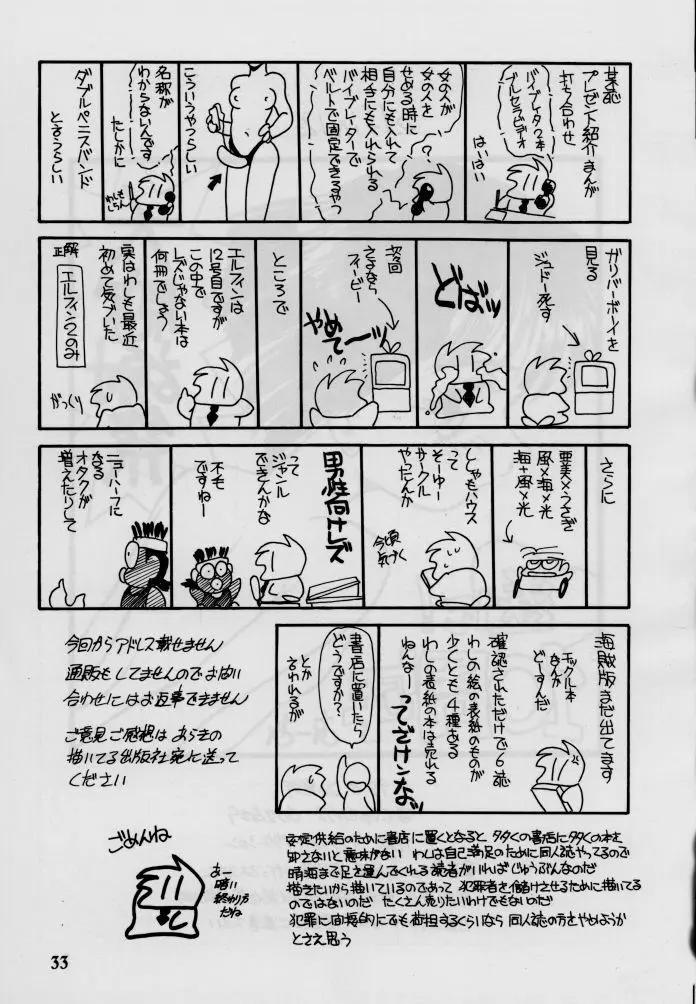 某誌
プレゼント紹介まんが
打ち合わせ
バイブレータ2本
ブルセラビデオ
はいはい
女の人が
女の人を
せめる時に
自分にも入れて
相手にも入れられる
バイブレーターで
ベルトで固定できるやつ
こういうやつらしい
名称が
わからないんです
たしかに
わしも
しらん
ダブルペニスバンド
と言うらしい
ガリバーボーイを
見る
ジュドー死す
どばッ
次回
さよなら
フィービー
やめて〜ッ
ところで
エルフィンは
12号目ですが
この中で
レズじゃない本は
何冊でしょう
実はわしも最近
初めて気づいた
正解
エルフィン2のみ
がっくり
さらに
亜美×うさぎ
風×海×光
海+風×光
ししゃもハウス
って
そーゆー
サークル
やったんか
今頃
気付く
男性向けレズ
って
ジャンル
できんかな
不毛
ですねー
ニューハーフに
なる
オタクが
増えたりして
海賊版まだ出てます
モックル本
なんか
どーすんだ
確認されただけで6誌
わしの絵の表紙のものが
少くとも4種ある
わしの表紙の本は売れる
ねんなー
ってざけンなッ
書店に置いたら
どうですか?
とか
言われるが
今回からアドレス載せません
通販もしてませんのでお問い
合わせにはお返事できません
ご意見ご感想はあらきの
描いてる出版社宛に送って
ください
ごめんね
あー
暗い
終わり方
だね
安定供給のために書店に置くとなると 多くの書店に多くの本を
卸さないと意味がない わしは自己満足のために同人誌やってるので
晴海まで足を運んでくれる読者がいればじゅうぶんなのだ
描きたいから描いているのであって 犯罪者を儲けさせるために描いてる
のではないのだ たくさん売りたいわけでもないのだ
犯罪に間接的にでも荷担するくらいなら 同人誌の方をやめようか
とさえ思う
33